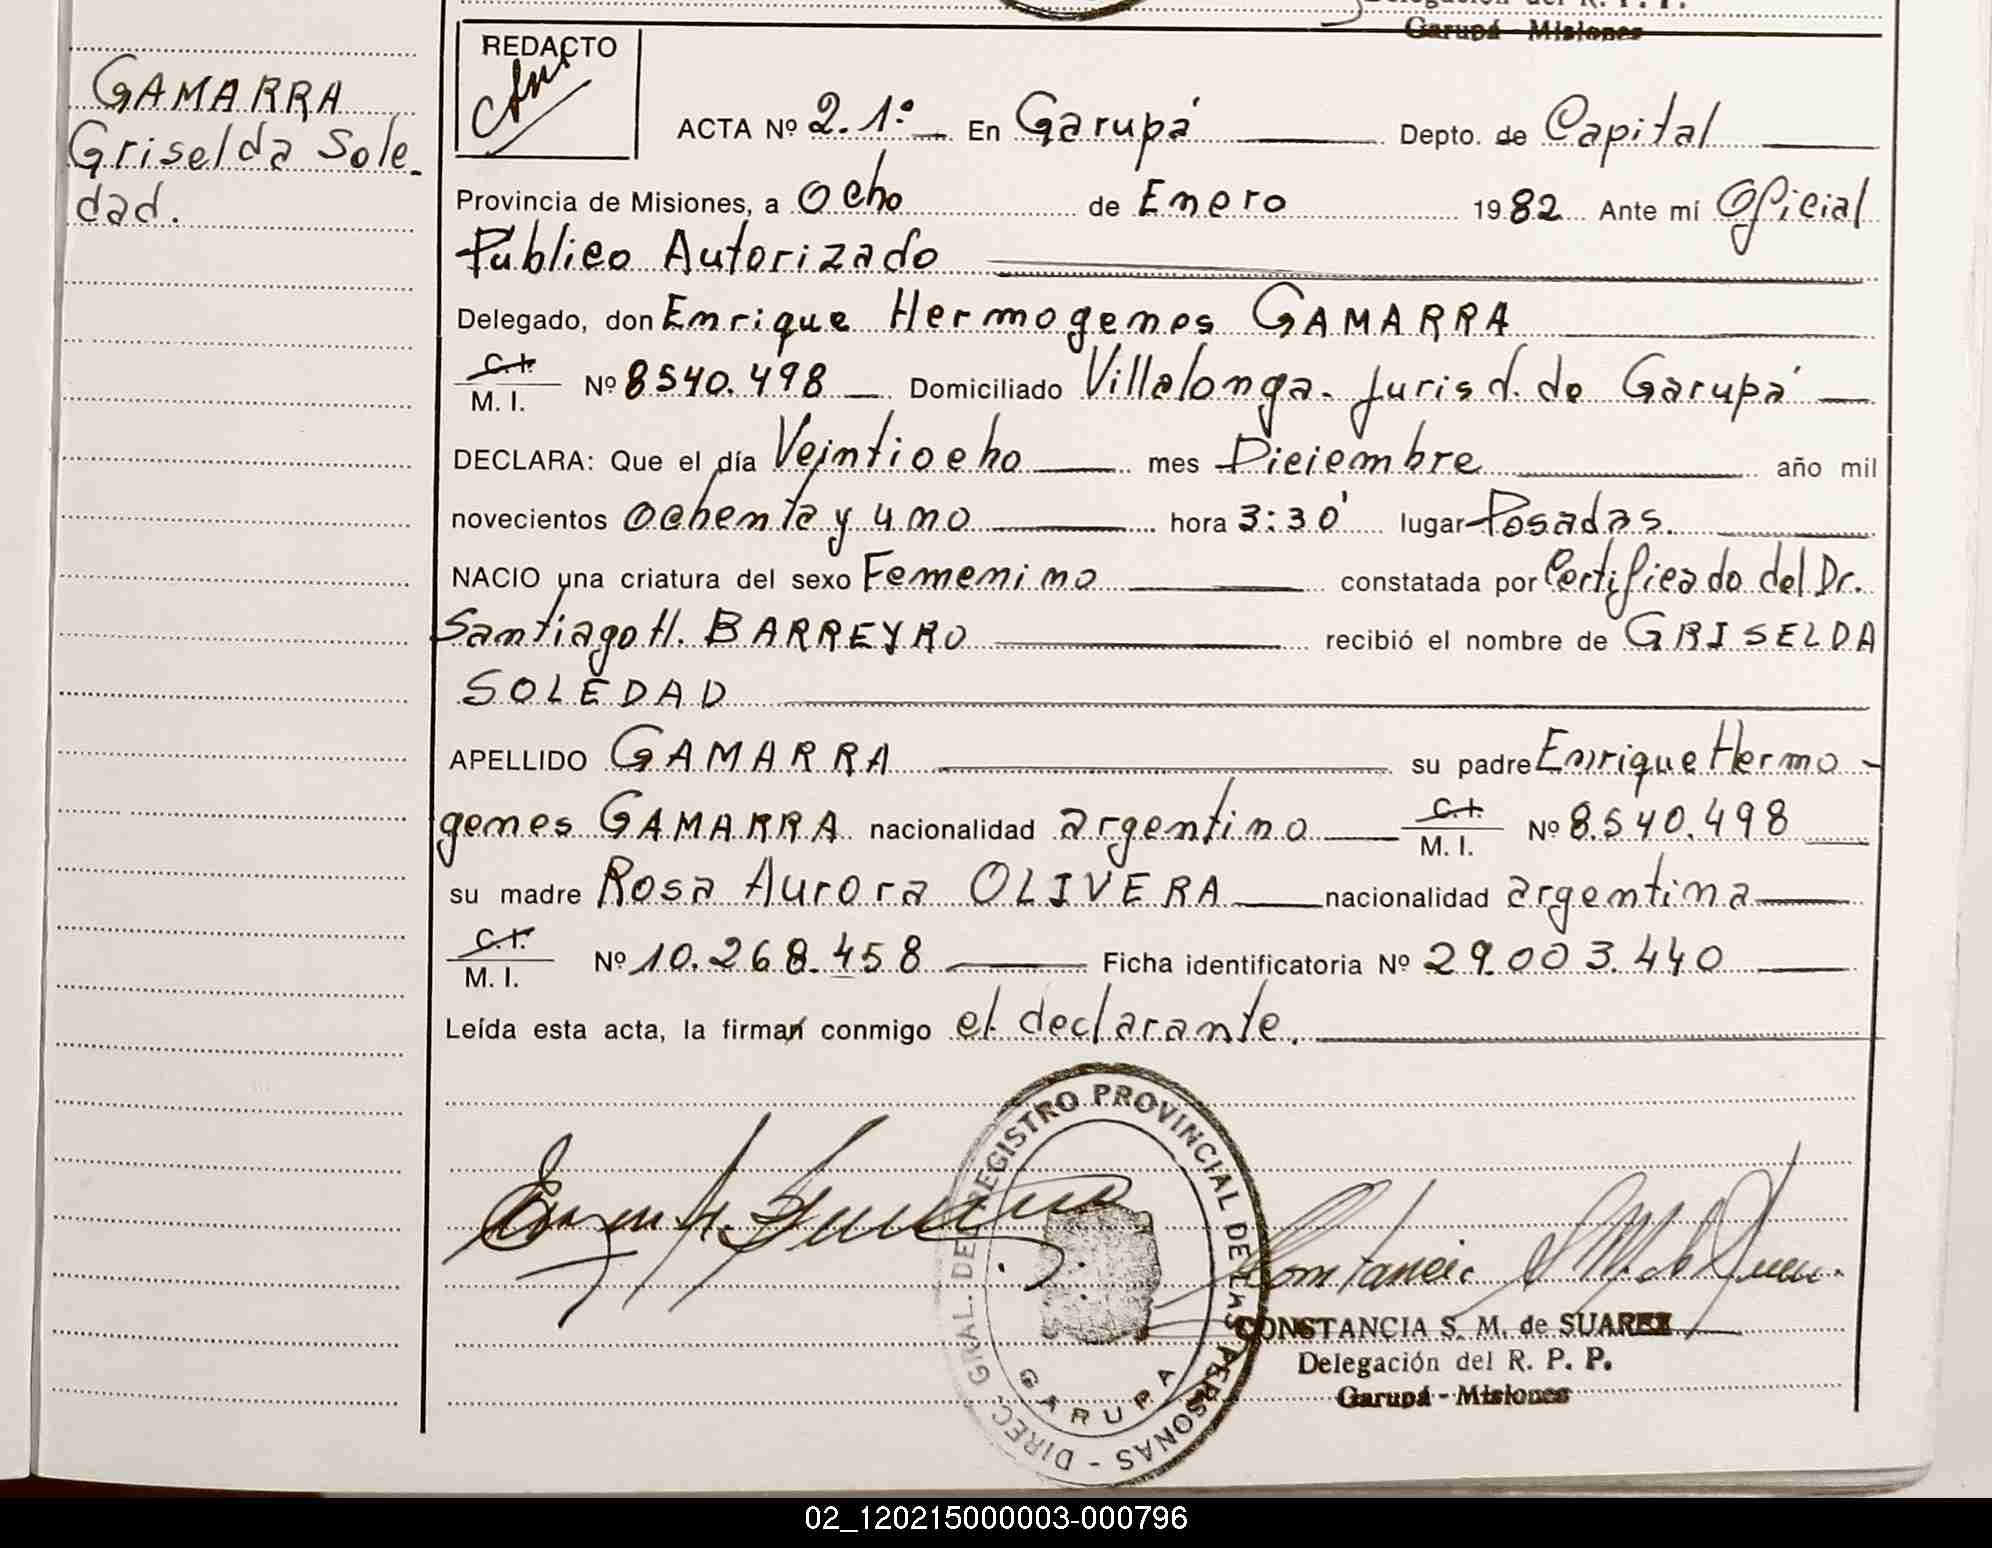 Garupá - Misiones
GAMARRA
Griselda Sole-
dad.
REDACTO
ACTA Nº 2.1º En Garupá Depto. de Capital
Provincia de Misiones, a Ocho de Enero 1982 Ante mí Oficial
Público Autorizado
Delegado, don Enrique Hermogenes GAMARRA
C.I. M. I. Nº 8540.498 Domiciliado Villalonga. Jurisd. de Garupá
DECLARA: Que el día Veintiocho mes Diciembre año mil
novecientos Ochenta y uno hora 3:30' lugar Posadas.
NACIO una criatura del sexo Femenino constatada por Certificado del Dr.
Santiago H. BARREYRO recibió el nombre de GRISELDA
SOLEDAD
APELLIDO GAMARRA su padre Enrique Hermo-
genes GAMARRA nacionalidad argentino C.I. M. I. Nº 8.540.498
su madre Rosa Aurora OLIVERA nacionalidad argentina
C.I. M. I. Nº 10.268.458 Ficha identificatoria Nº 29.003.440
Leída esta acta, la firman conmigo el declarante.
DIREC. GRAL. DEL REGISTRO PROVINCIAL DE LAS PERSONAS -
GARUPA
CONSTANCIA S. M. de SUAREZ
Delegación del R. P. P.
Garupá - Misiones
02_120215000003-000796